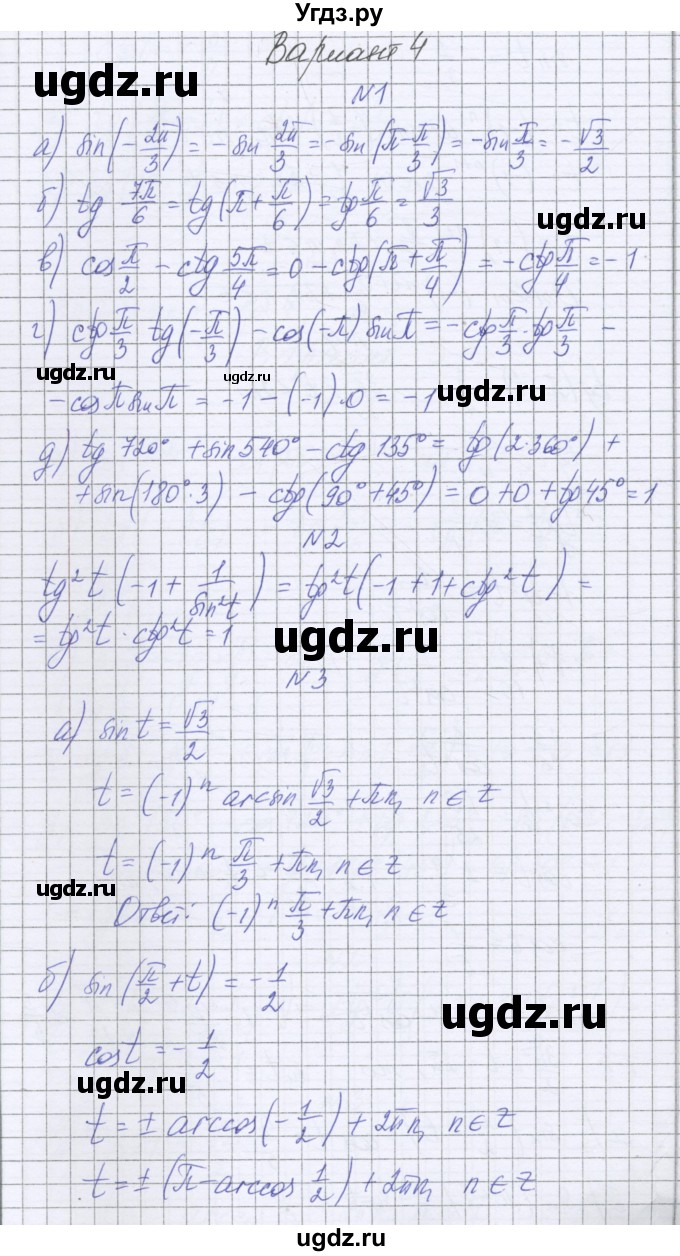 Угдз.ру
Вариант 4
ugdz.ru
N1
а) sin(-2π/3) = -sin 2π/3 = -sin(π-π/3) = -sin π/3 = -√3/2
б) tg 7π/6 = tg(π+π/6) = tg π/6 = √3/3
ugdz.ru
в) cos π/2 - ctg 5π/4 = 0 - ctg(π+π/4) = -ctg π/4 = -1
г) ctg π/3 tg(-π/3) - cos(-π) sin π = -ctg π/3 · tg π/3 -
ugdz.ru
ugdz.ru
ugdz.ru
- cos π sin π = -1 - (-1)·0 = -1
д) tg 720° + sin 540° - ctg 135° = tg(2·360°) +
+ sin(180°·3) - ctg(90°+45°) = 0+0+tg 45° = 1
N2
tg²t(-1 + 1/sin²t) = tg²t(-1+1+ctg²t) =
= tg²t · ctg²t = 1
ugdz.ru
N3
а) sin t = √3/2
t = (-1)ⁿ arcsin √3/2 + πn, n ∈ Z
t = (-1)ⁿ π/3 + πn, n ∈ Z
ugdz.ru
Ответ: (-1)ⁿ π/3 + πn, n ∈ Z
б) sin(π/2 + t) = -1/2
ugdz.ru
cos t = -1/2
ugdz.ru
t = ± arccos(-1/2) + 2πn, n ∈ Z
t = ± (π - arccos 1/2) + 2πn, n ∈ Z
ugdz.ru